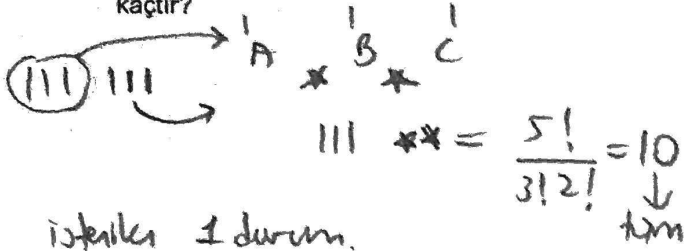 kaçtır?
| | |
A ★ B ★ C
||| |||
||| ★★ = 5!/3!2! = 10
tüm
istenilen 1 durum.